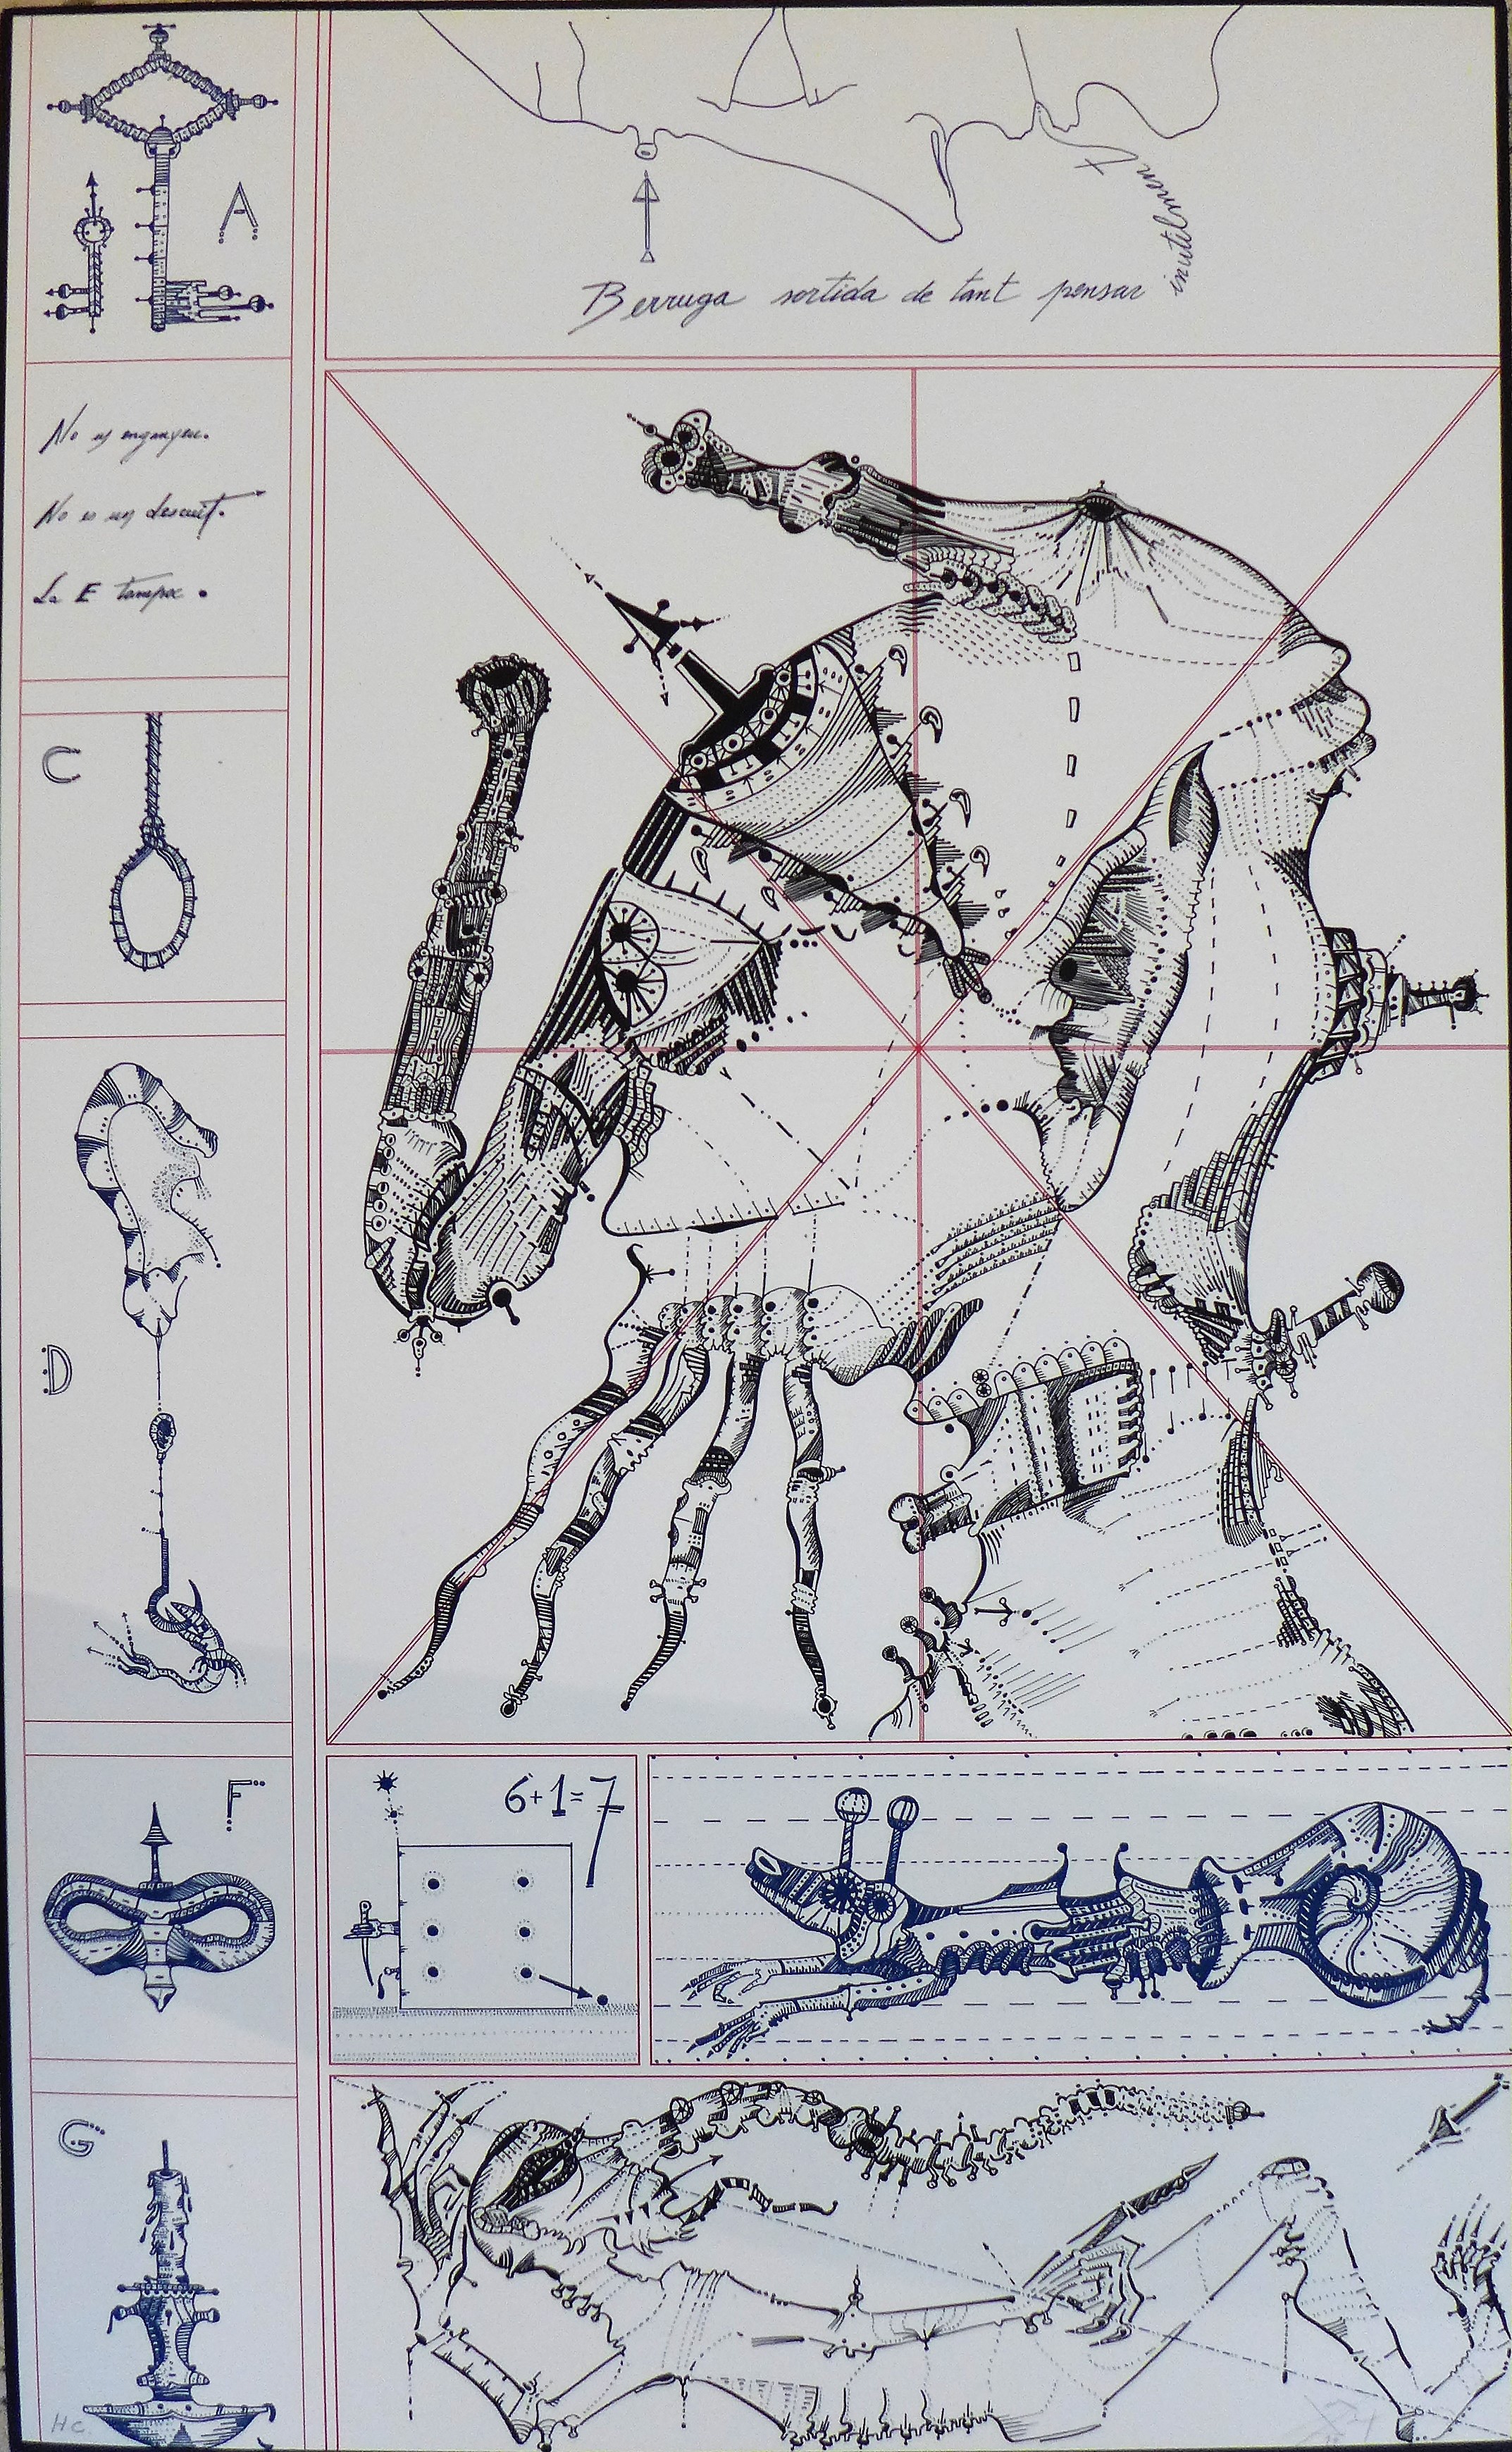 A
Berruga sortida de tant pensar inutilment
No us enganyeu.
No es un descuit.
La E tampoc.
C
D
F
6+1=7
G
H C.